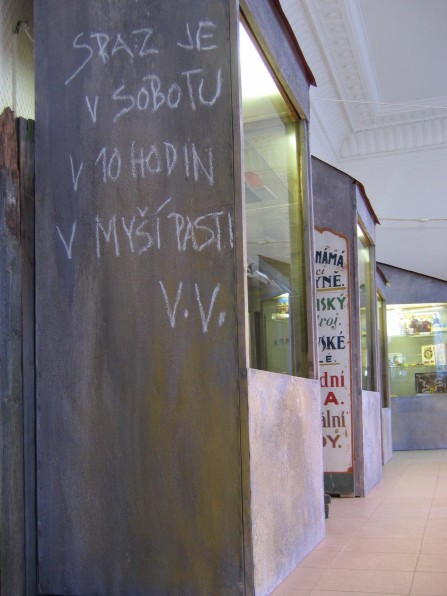 SRAZ JE
V SOBOTU
V 10 HODIN
V MYŠÍ PASTI
V.V.
NÁMÁ
YNĚ.
SKÝ
roj.
SKÉ
LÉ.
dní
A.
ální
DY.